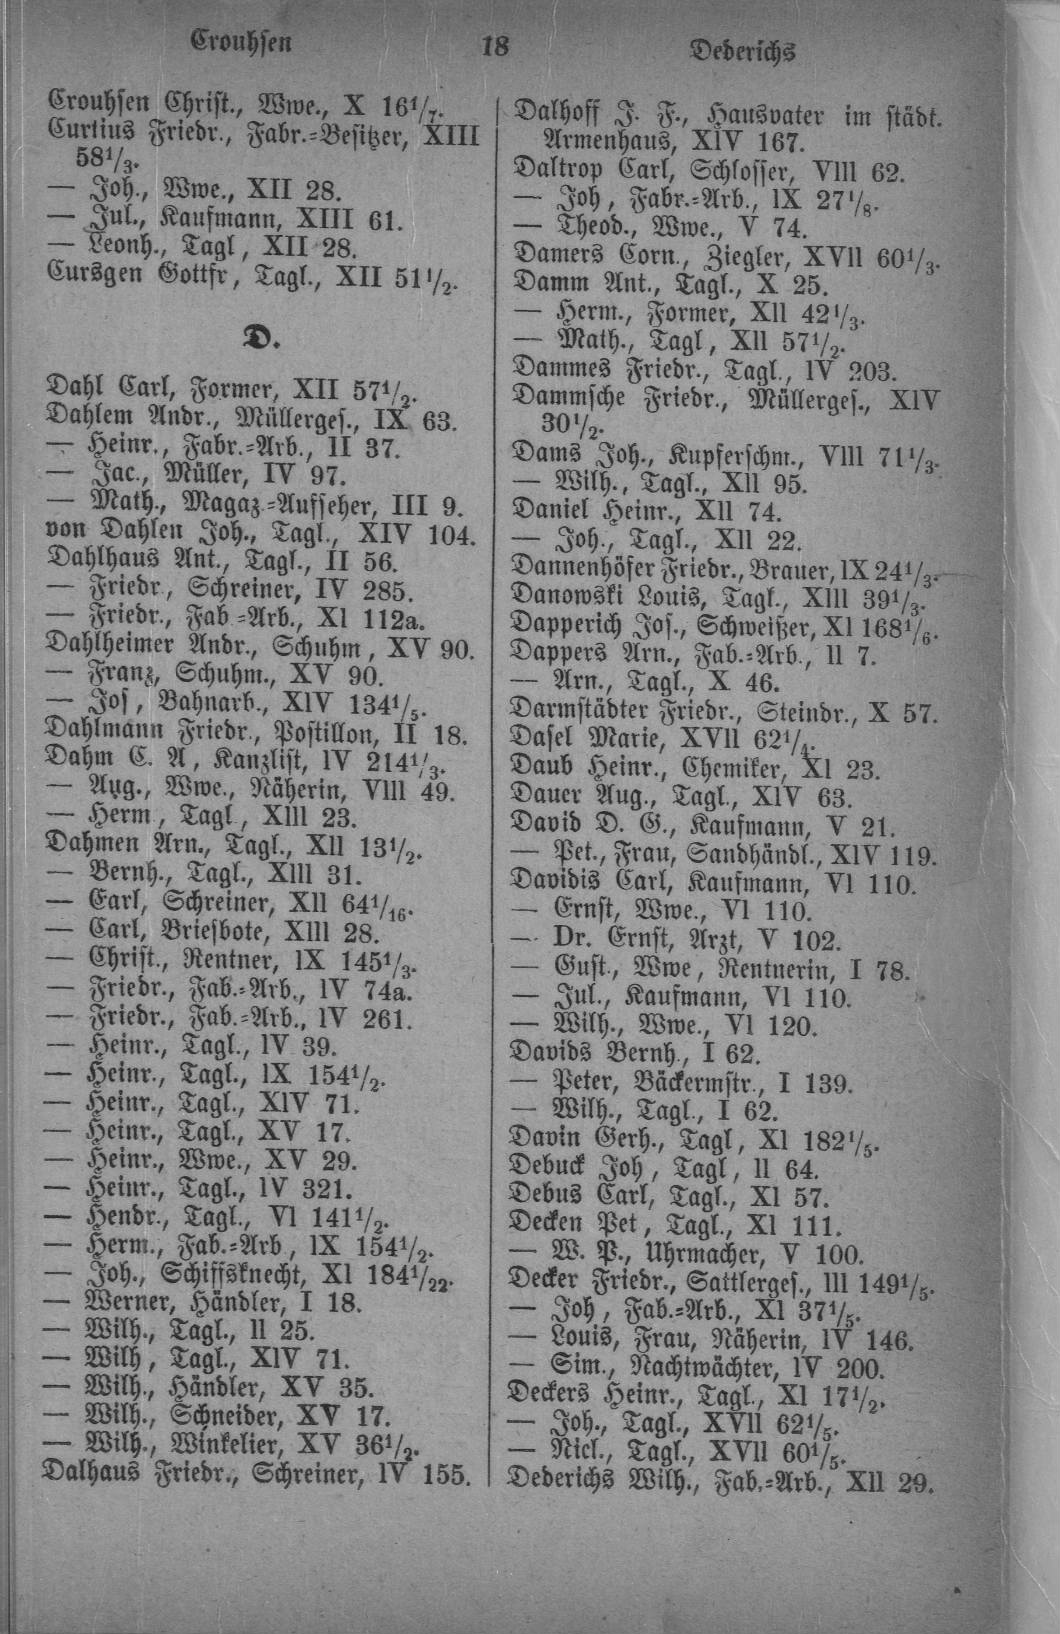 Crouhsen 18 Dederichs
Crouhsen Christ., Wwe., X 16 1/7.
Curtius Friedr., Fabr.=Besitzer, XIII
58 1/3.
— Joh., Wwe., XII 28.
— Jul., Kaufmann, XIII 61.
— Leonh., Tagl, XII 28.
Cursgen Gottfr, Tagl., XII 51 1/2.
D.
Dahl Carl, Former, XII 57 1/2.
Dahlem Andr., Müllerges., IX 63.
— Heinr., Fabr.=Arb., II 37.
— Jac., Müller, IV 97.
— Math., Magaz.=Aufseher, III 9.
von Dahlen Joh., Tagl., XIV 104.
Dahlhaus Ant., Tagl., II 56.
— Friedr., Schreiner, IV 285.
— Friedr., Fab=Arb., XI 112a.
Dahlheimer Andr., Schuhm, XV 90.
— Franz, Schuhm., XV 90.
— Jos, Bahnarb., XIV 134 1/5.
Dahlmann Friedr., Postillon, II 18.
Dahm C. A, Kanzlist, IV 214 1/3.
— Aug., Wwe., Näherin, VIII 49.
— Herm, Tagl, XIII 23.
Dahmen Arn., Tagl., XII 13 1/2.
— Bernh., Tagl., XIII 31.
— Carl, Schreiner, XII 64 1/16.
— Carl, Briefbote, XIII 28.
— Christ., Rentner, IX 145 1/3.
— Friedr., Fab.=Arb., IV 74a.
— Friedr., Fab.=Arb., IV 261.
— Heinr., Tagl., IV 39.
— Heinr., Tagl., IX 154 1/2.
— Heinr., Tagl., XIV 71.
— Heinr., Tagl., XV 17.
— Heinr., Wwe., XV 29.
— Heinr., Tagl., IV 321.
— Hendr., Tagl., VI 141 1/2.
— Herm., Fab.=Arb, IX 154 1/2.
— Joh., Schiffsknecht, XI 184 1/22.
— Werner, Händler, I 18.
— Wilh., Tagl., II 25.
— Wilh, Tagl., XIV 71.
— Wilh., Händler, XV 35.
— Wilh., Schneider, XV 17.
— Wilh., Winkelier, XV 36 1/2.
Dalhaus Friedr., Schreiner, IV 155.
Dalhoff J. F., Hausvater im städt.
Armenhaus, XIV 167.
Daltrop Carl, Schlosser, VIII 62.
— Joh, Fabr.=Arb., IX 27 1/8.
— Theod., Wwe., V 74.
Damers Corn., Ziegler, XVII 60 1/3.
Damm Ant., Tagl., X 25.
— Herm., Former, XII 42 1/3.
— Math., Tagl, XII 57 1/2.
Dammes Friedr., Tagl., IV 203.
Dammsche Friedr., Müllerges., XIV
30 1/2.
Dams Joh., Kupferschm., VIII 71 1/3.
— Wilh., Tagl., XII 95.
Daniel Heinr., XII 74.
— Joh., Tagl., XII 22.
Dannenhöfer Friedr., Brauer, IX 24 1/3.
Danowski Louis, Tagl., XIII 39 1/3.
Dapperich Jos., Schweißer, XI 168 1/6.
Dappers Arn., Fab.=Arb., II 7.
— Arn., Tagl., X 46.
Darmstädter Friedr., Steindr., X 57.
Dasel Marie, XVII 62 1/4.
Daub Heinr., Chemiker, XI 23.
Dauer Aug., Tagl., XIV 63.
David D. G., Kaufmann, V 21.
— Pet., Frau, Sandhändl., XIV 119.
Davidis Carl, Kaufmann, VI 110.
— Ernst, Wwe., VI 110.
— Dr. Ernst, Arzt, V 102.
— Gust., Wwe, Rentnerin, I 78.
— Jul., Kaufmann, VI 110.
— Wilh., Wwe., VI 120.
Davids Bernh., I 62.
— Peter, Bäckermstr., I 139.
— Wilh., Tagl., I 62.
Davin Gerh., Tagl, XI 182 1/5.
Debuck Joh, Tagl, II 64.
Debus Carl, Tagl., XI 57.
Decken Pet, Tagl., XI 111.
— W. P., Uhrmacher, V 100.
Decker Friedr., Sattlerges., III 149 1/5.
— Joh, Fab.=Arb., XI 37 1/5.
— Louis, Frau, Näherin, IV 146.
— Sim., Nachtwächter, IV 200.
Deckers Heinr., Tagl., XI 17 1/2.
— Joh., Tagl., XVII 62 1/5.
— Nicl., Tagl., XVII 60 1/5.
Dederichs Wilh., Fab.=Arb., XII 29.